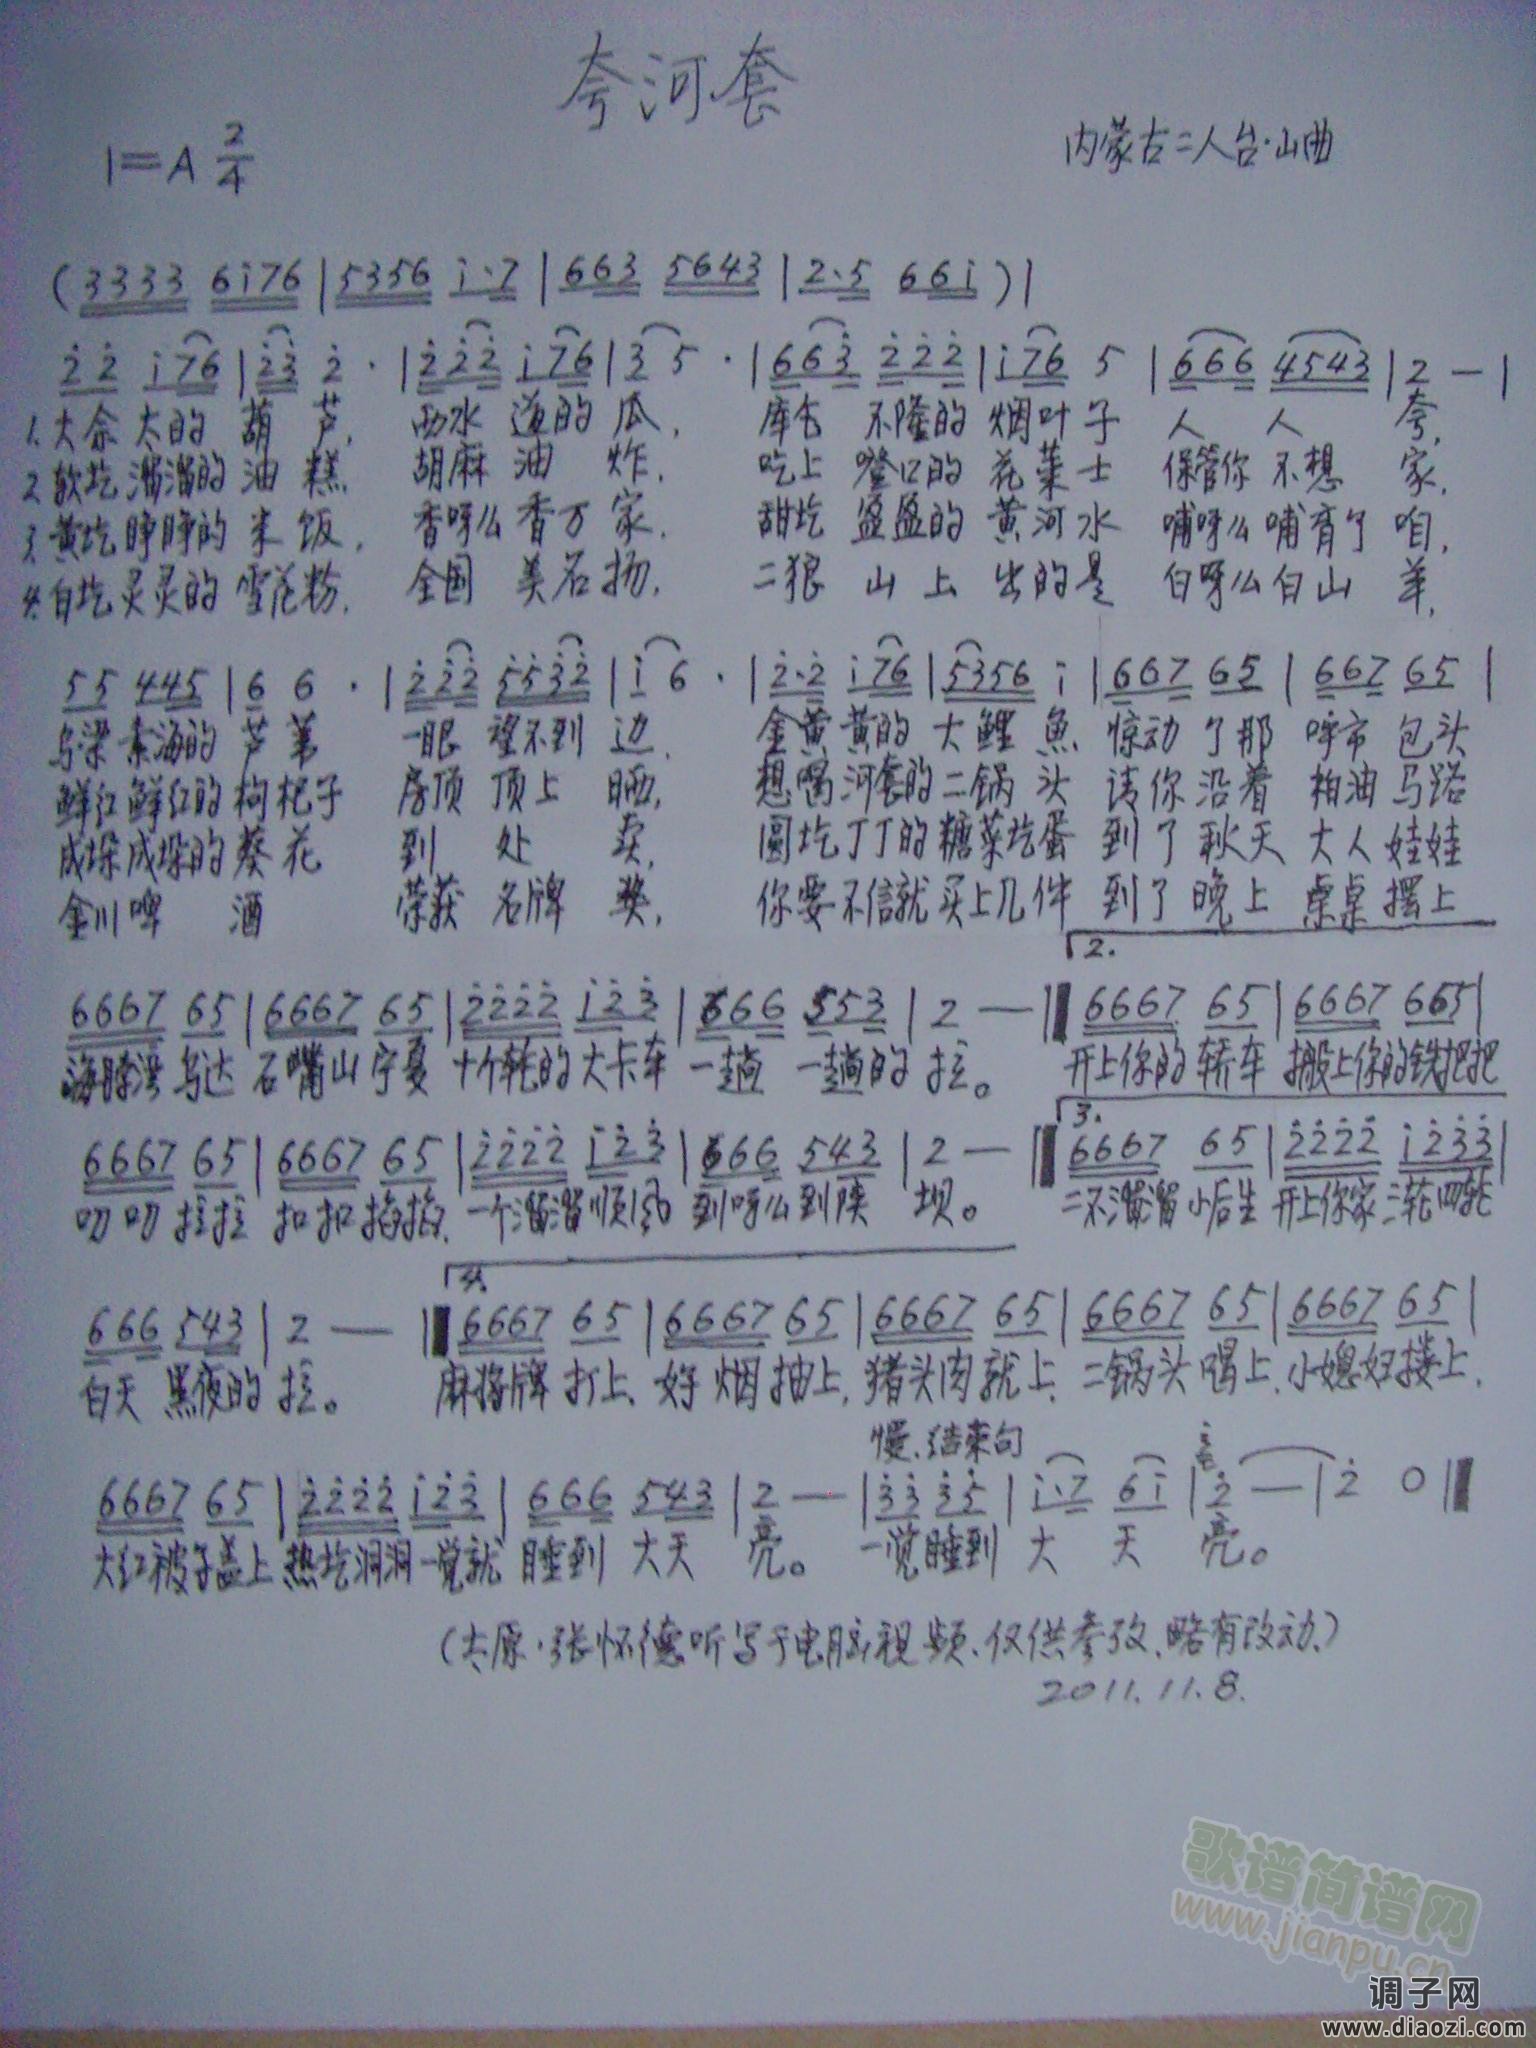 夸河套
1=A 2/4
内蒙古二人台·山曲
(3333 6i76|5356 i·7|663 5643|2·5 66i)|
2̇2̇ i76|2̇3̇ 2̇·|2̇2̇2̇ i76|3 5·|663̇ 2̇2̇2̇|i76 5|666 4543|2 —|
1.大佘太的葫芦,西水道的瓜,库仑不隆的烟叶子人人夸,
2.软圪溜溜的油糕 胡麻油炸,吃上噔口的花莱士 保管你不想家,
3.黄圪睁睁的米饭,香呀么香万家,甜圪盈盈的黄河水 哺呀么哺育了咱,
4.白圪灵灵的雪花粉,全国美名扬,二狼山上出的是白呀么白山羊,
55 445|6 6·|2̇2̇2̇ 5̇5̇3̇2̇|i 6·|2̇·2̇ i76|5356 i|667 65|667 65|
乌梁素海的芦苇 一眼望不到边,金黄黄的大鲤魚 惊动了那呼市包头
鲜红鲜红的枸杞子 房顶顶上晒,想喝河套的二锅头 请你沿着柏油马路
成垛成垛的葵花 到处卖,圆圪丁丁的糖菜圪蛋 到了秋天大人娃娃
金川啤酒 荣获名牌奖,你要不信就买上几件 到了晚上桌桌摆上
2.
6667 65|6667 65|2̇2̇2̇2̇ i2̇3̇|666 553|2 —‖6667 65|6667 665|
海勃湾乌达石嘴山宁夏十个轮的大卡车一趟一趟的拉。开上你的轿车 搬上你的铁把把
3.
6667 65|6667 65|2̇2̇2̇2̇ i2̇3̇|666 543|2 —‖6667 65|2̇2̇2̇2̇ i2̇3̇3̇|
叨叨拉拉扣扣掐掐,一个溜溜顺风到呀么到陕坝。二不溜溜小后生 开上你家三轮四轮
4.
666 543|2 —‖6667 65|6667 65|6667 65|6667 65|6667 65|
白天黑夜的拉。麻将牌打上、好烟抽上,猪头肉就上、二锅头喝上、小媳妇搂上,
慢、结束句
6667 65|2̇2̇2̇2̇ i2̇3̇|666 543|2 —|3̇3̇ 3̇5̇|i·7 6i|2̇ —|2̇ 0‖
大红被子盖上热圪洞洞一觉就睡到大天亮。一觉睡到大天亮。
(太原·张怀德听写于电脑视频、仅供参考、略有改动)
2011.11.8.
歌谱简谱网
www.jianpu.cn
调子网
www.diaozi.com